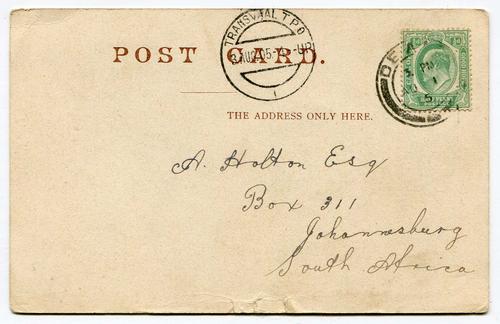 TRANSVAAL T.P.O
3 AU 05
-UP
1
POST CARD.
THE ADDRESS ONLY HERE.
A. Holton Esq
Box 311
Johannesburg
South Africa